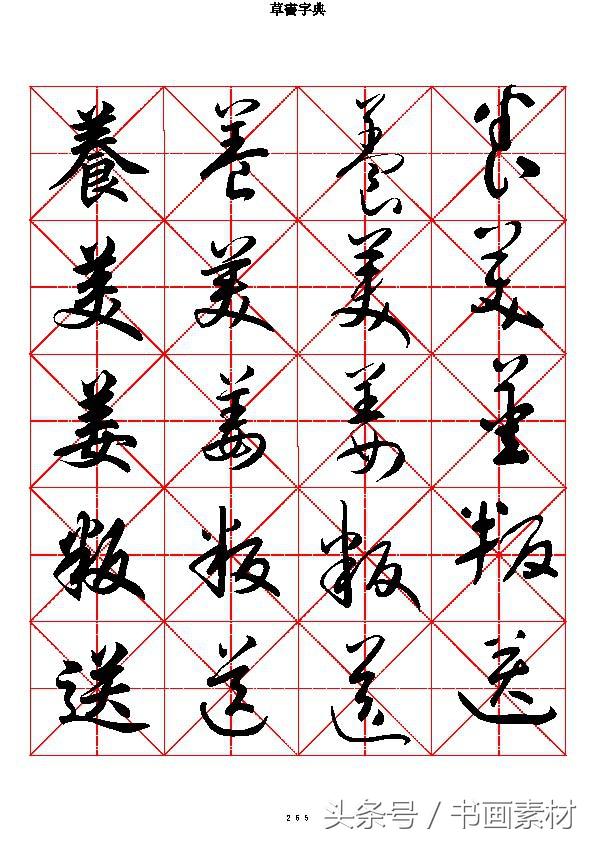 草書字典
養 養 養 養
美 美 美 美
姜 姜 姜 姜
叛 叛 叛 叛
送 送 送 送
265
头条号 / 书画素材